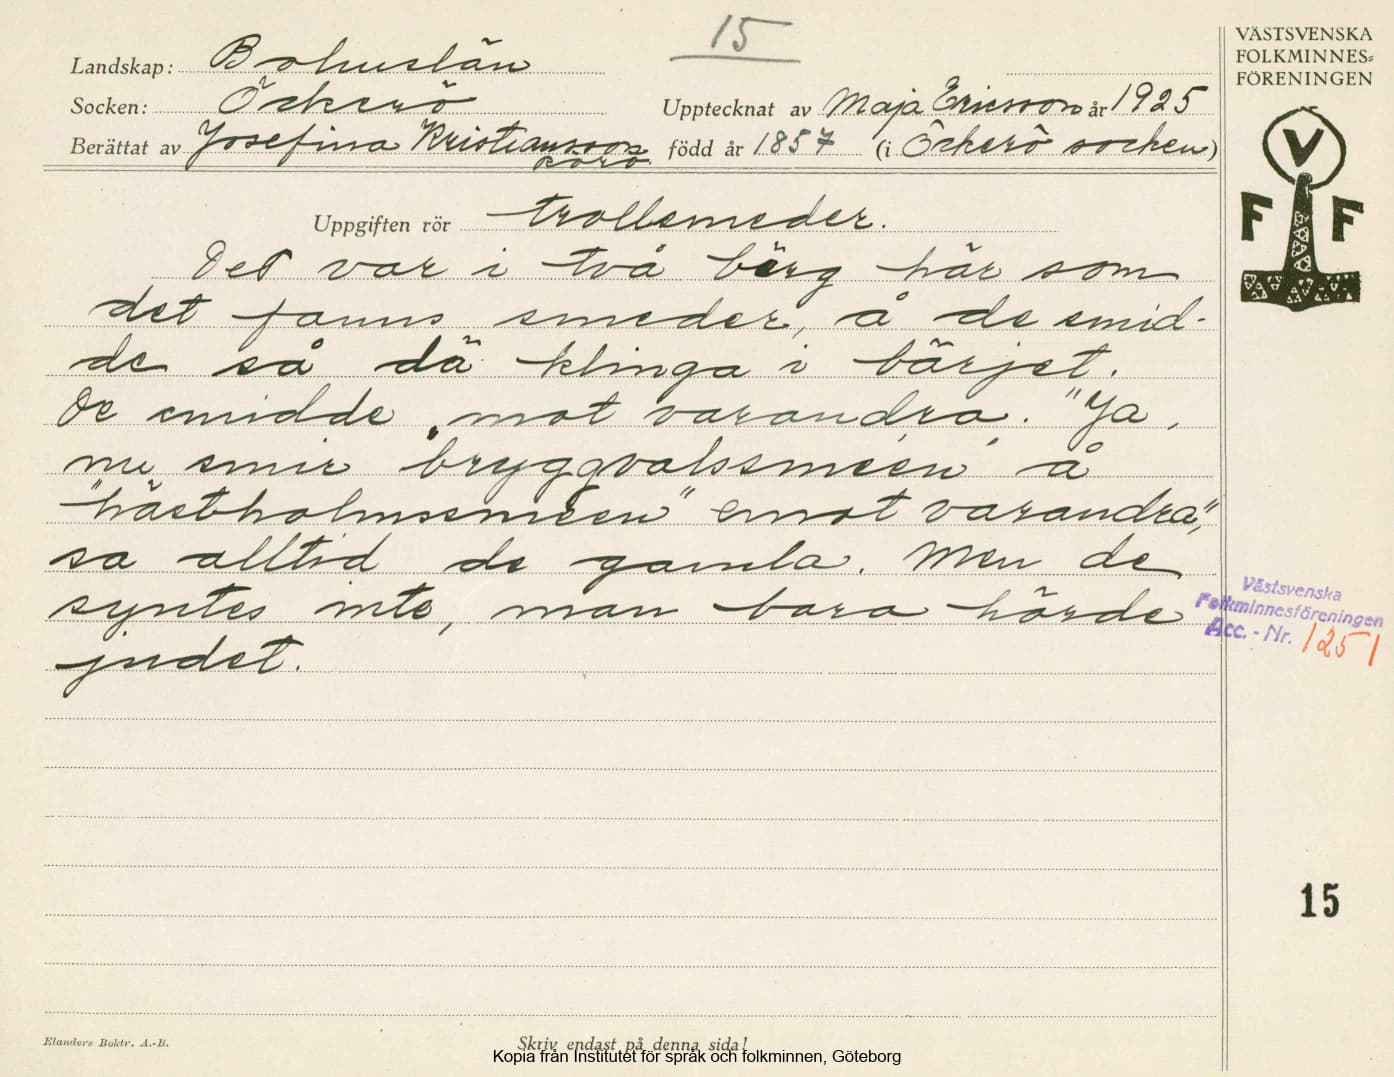 15
VÄSTSVENSKA
FOLKMINNES=
FÖRENINGEN
V
F F
Landskap: Bohuslän
Socken: Öckerö
Upptecknat av Maja Ericsson år 1925
Berättat av Josefina Kristiansson född år 1857 (i Öckerö socken)
Rörö
Uppgiften rör trollsmeder.
Det var i två bärg här som
det fanns smeder, å de smid-
de så dä klinga i bärjet.
De smidde mot varandra. "Ja,
nu smir "bryggvalssméen" å
"hästholmssméen" emot varandra",
sa alltid de gamla. Men de
syntes inte, man bara hörde
judet.
Västsvenska
Folkminnesföreningen
Acc. - Nr. 1251
15
Elanders Boktr. A.-B.
Skriv endast på denna sida!
Kopia från Institutet för språk och folkminnen, Göteborg